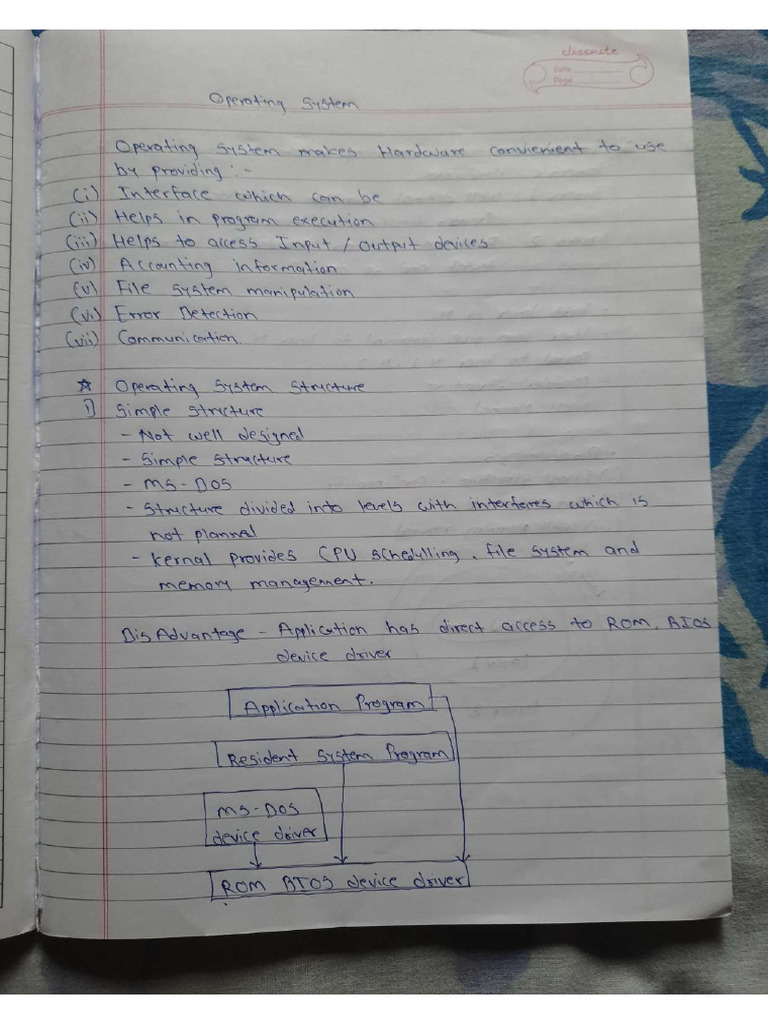 classmate
Date
Page
Operating System
Operating System makes Hardware convienient to use
by providing :-
(i) Interface which can be
(ii) Helps in program execution
(iii) Helps to access Input / Output devices
(iv) Accounting information
(v) File System manipulation
(vi) Error Detection
(vii) Communication.
☆ Operating System Structure
1) Simple Structure
- Not well designed
- Simple Structure
- MS-DOS
- Structure divided into levels with interferes which is
not planned
- Kernal provides CPU schedulling, file system and
memory management.
DisAdvantage - Application has direct access to ROM, BIOS
device driver
Application Program
Resident System Program
MS-DOS
device driver
ROM BIOS device driver